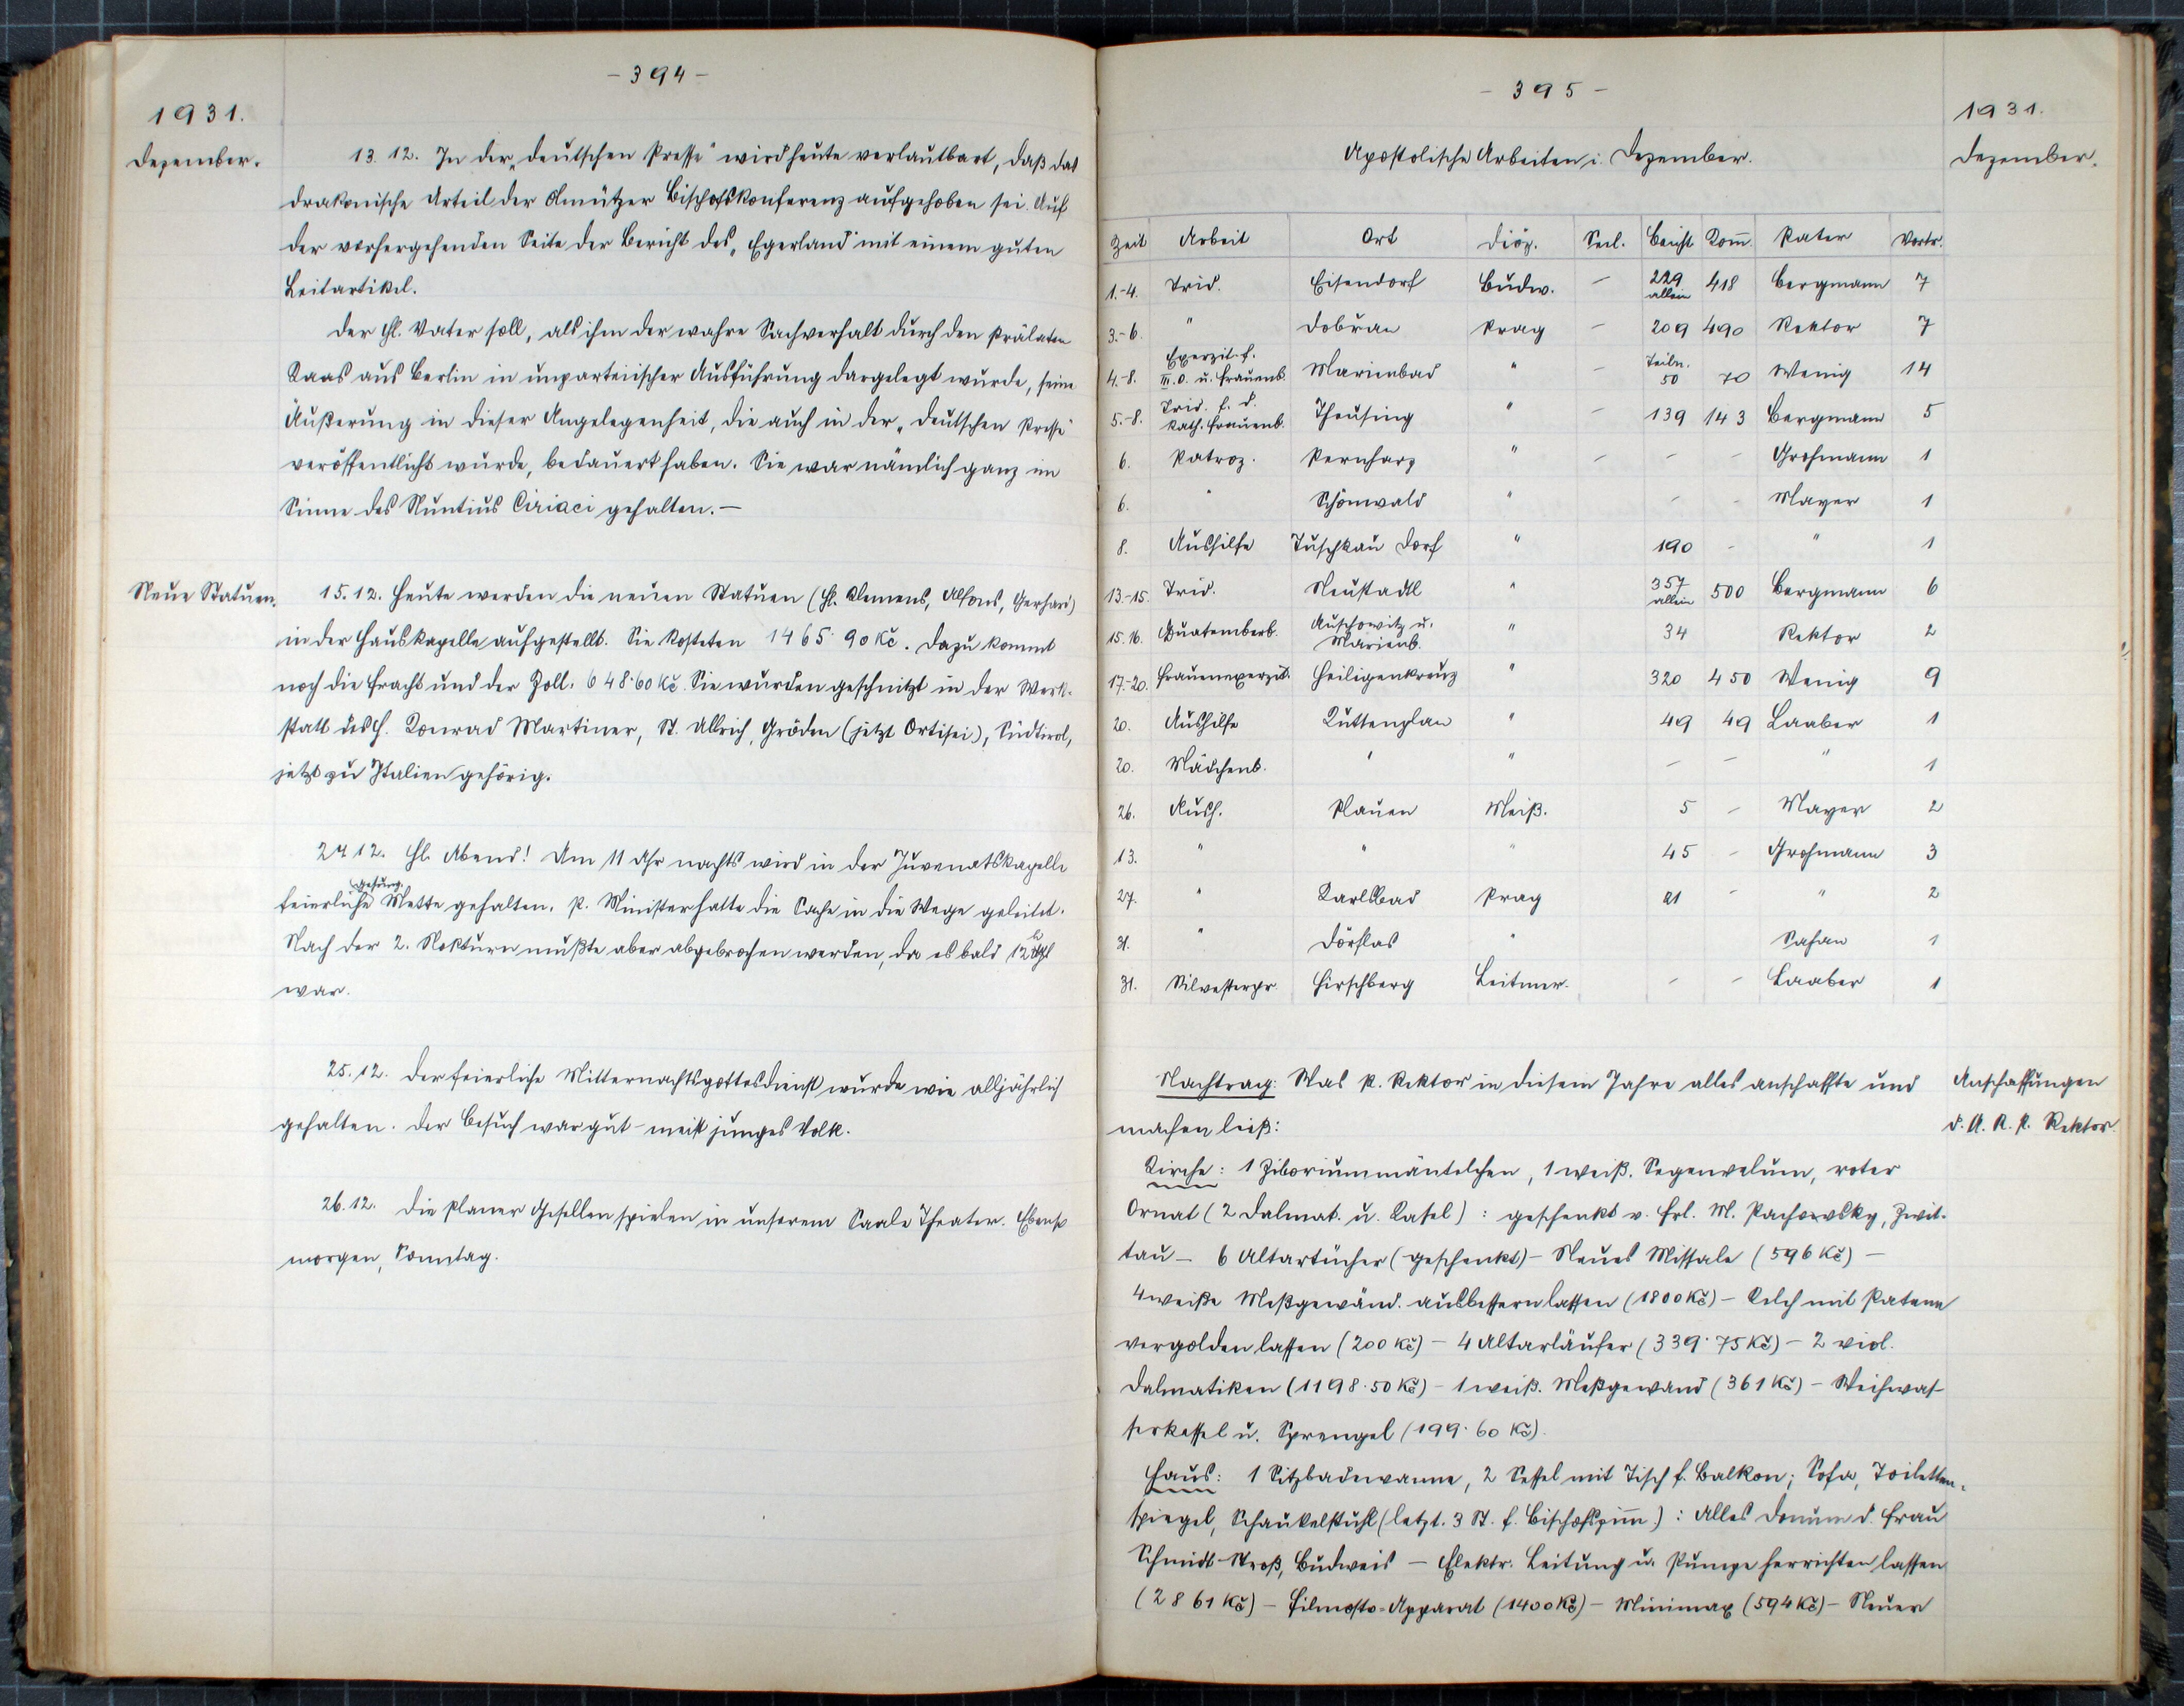 - 394 -
1931.
Dezember.
13. 12. In der „Deutschen Presse" wird heute verlautbart, daß das
drakonische Urteil der Olmützer Bischofskonferenz aufgehoben sei. Auf
der vorhergehenden Seite der Bericht des „Egerland" mit einem guten
Leitartikel.
Der Hl. Vater soll, als ihm der wahre Sachverhalt durch den Prälaten
Kaas aus Berlin in unparteiischer Ausführung dargelegt wurde, seine
Äußerung in dieser Angelegenheit, die auch in der „Deutschen Presse"
veröffentlicht wurde, bedauert haben. Sie war nämlich ganz im
Sinne des Nuntius Ciriaci gehalten. —
Neue Statuen.
15. 12. Heute werden die neuen Statuen (Hl. Klemens, Alfons, Gerhard)
in der Hauskapelle aufgestellt. Sie kosteten 1465·90 Kč. Dazu kommt
noch die Fracht und der Zoll. 648·60 Kč. Sie wurden geschnitzt in der Werk-
statt des H. Konrad Martiner, St. Ulrich, Gröden (jetzt Ortisei), Südtirol,
jetzt zu Italien gehörig.
24 12. Hl. Abend! Um 11 Uhr nachts wird in der Juvenatskapelle
feierliche (gesung.) Mette gehalten. P. Minister hatte die Sache in die Wege geleitet.
Nach der 2. Nokturn mußte aber abgebrochen werden, da es bald 12 h
war.
25. 12. Der feierliche Mitternachtsgottesdienst wurde wie alljährlich
gehalten. Der Besuch war gut - meist junges Volk.
26. 12. Die Planer Gesellen spielen in unserem Saale Theater. Ebenso
morgen, Sonntag.
- 395 -
1931.
Dezember.
Apostolische Arbeiten i. Dezember.
Zeit Arbeit Ort Diöz. Seel. Beicht Kom̄. Pater Vortr.
1.-4. Trid. Eisendorf Budw. - 229 allein 418 Bergmann 7
3.-6. " Dobřan Prag - 209 490 Rektor 7
4.-8. Exerzit. f. III. O. u. Frauenb. Marienbad " - Teiln. 50 70 Wenig 14
5.-8. Trid. f. d. Kath. Frauenb. Theusing " - 139 143 Bergmann 5
6. Patroz. Pernharz " - - - Grohmann 1
6. " Schönwald " - - Mayer 1
8. Aushilfe Tuschkau Dorf " 190 - " 1
13.-15. Trid. Neustadtl " 357 allein 500 Bergmann 6
15. 16. Quatemberb. Auschowitz u. Marienb. " 34 Rektor 2
17.-20. Frauenexerzit. Heiligenkreuz " 320 450 Wenig 9
20. Aushilfe Kuttenplan " 49 49 Laaber 1
20. Mädchenb. " " - - " 1
26. Aush. Plauen Meiß. 5 - Mayer 2
13. " " " 45 - Grohmann 3
27. " Karlsbad Prag 21 - " 2
31. " Dörflas " 1
31. Silvesterpr. Hirschberg Leitmer. - - Laaber 1
Nachtrag: Was P. Rektor in diesem Jahre alles anschaffte und
machen ließ:
Anschaffungen
d. A. R. P. Rektor.
Kirche: 1 Ziboriummäntelchen, 1 weiß. Segenvelum, roter
Ornat (2 Dalmat. u. Kasel): geschenkt v. Frl. M. Pachovsky, Zwit-
tau - 6 Altartücher (geschenkt) - Neues Missale (596 Kč) -
4 weiße Meßgewänd. ausbessern lassen (1800 Kč) - Kelch mit Patene
vergolden lassen (200 Kč) - 4 Altarläufer (339·75 Kč) - 2 viol.
Dalmatiken (1198·50 Kč) - 1 weiß. Meßgewand (361 Kč) - Weihwas-
serkessel u. Sprengel (199·60 Kč).
Haus: 1 Sitzbadewanne, 2 Sessel mit Tisch f. Balkon; Sofa, Toiletten-
spiegel, Schaukelstuhl (letzt. 3 St. f. Bischofszim̄.): Alles Donum d. Frau
Schmidt-Stroß, Budweis - Elektr. Leitung u. Pumpe herrichten lassen
(2861 Kč) - Filmosto-Apparat (1400 Kč) - Minimax (594 Kč) - Neuer